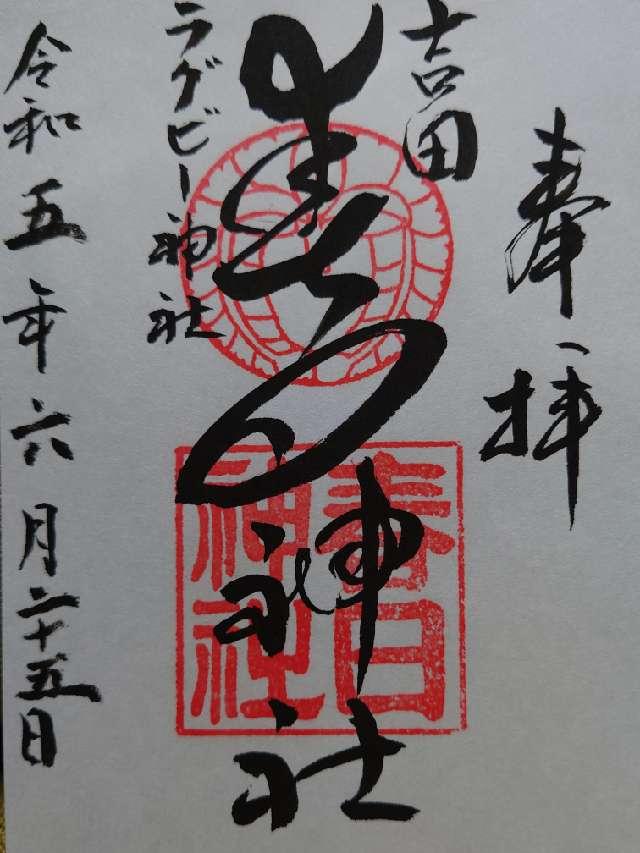 奉拝
吉田
春日神社
春日
神社
ラグビー神社
令和五年六月二十五日